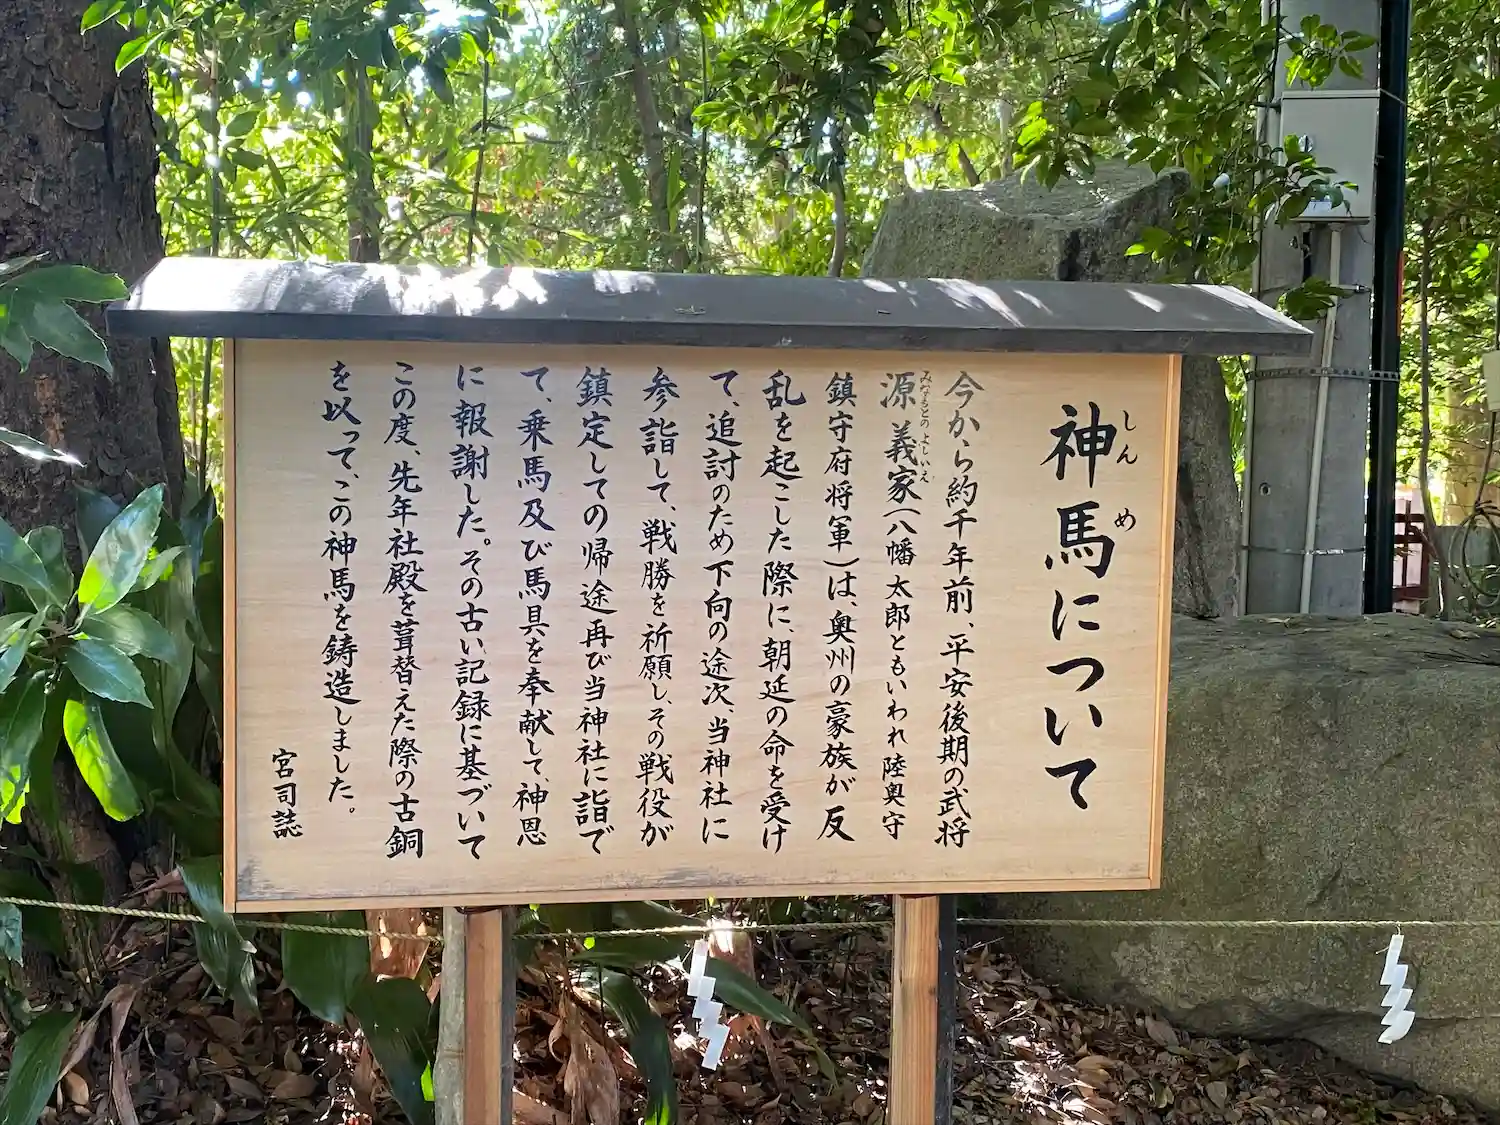 神馬について
しんめ
今から約千年前、平安後期の武将
源義家(八幡太郎ともいわれ陸奥守
みなもとのよしいえ
鎮守府将軍)は、奥州の豪族が反
乱を起こした際に、朝廷の命を受け
て、追討のため下向の途次、当神社に
参詣して、戦勝を祈願し、その戦役が
鎮定しての帰途再び当神社に詣で
て、乗馬及び馬具を奉献して、神恩
に報謝した。その古い記録に基づいて
この度、先年社殿を葺替えた際の古銅
を以って、この神馬を鋳造しました。
宮司誌